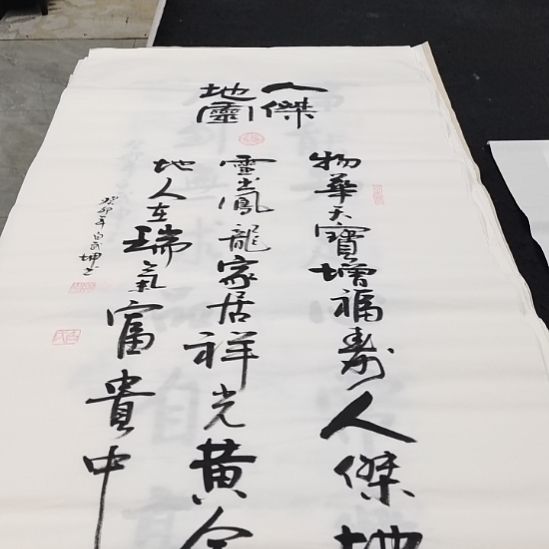 人傑
地靈
物華天寶增福壽人傑地
靈出鳳龍家居祥光黃金
地人在瑞氣富貴中
癸卯年白武坤书